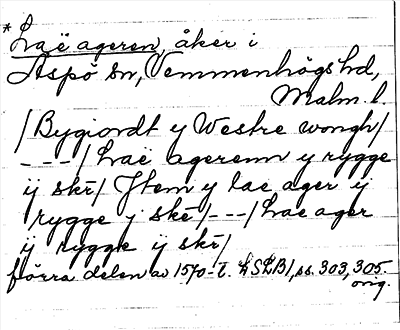 *Laë ageren, åker i
Aspö sn, Vemmenhögs hd,
Malm. l.
/Bygiordt y Westre wongh/
---/Laë agerenn y rygge
ij skr/ Jtem y lae ager y
rygge y skr/---/Lae ager
ij rygge ij skr/
förra delen av 1570-t. LSLB1, ss. 303, 305.
orig.